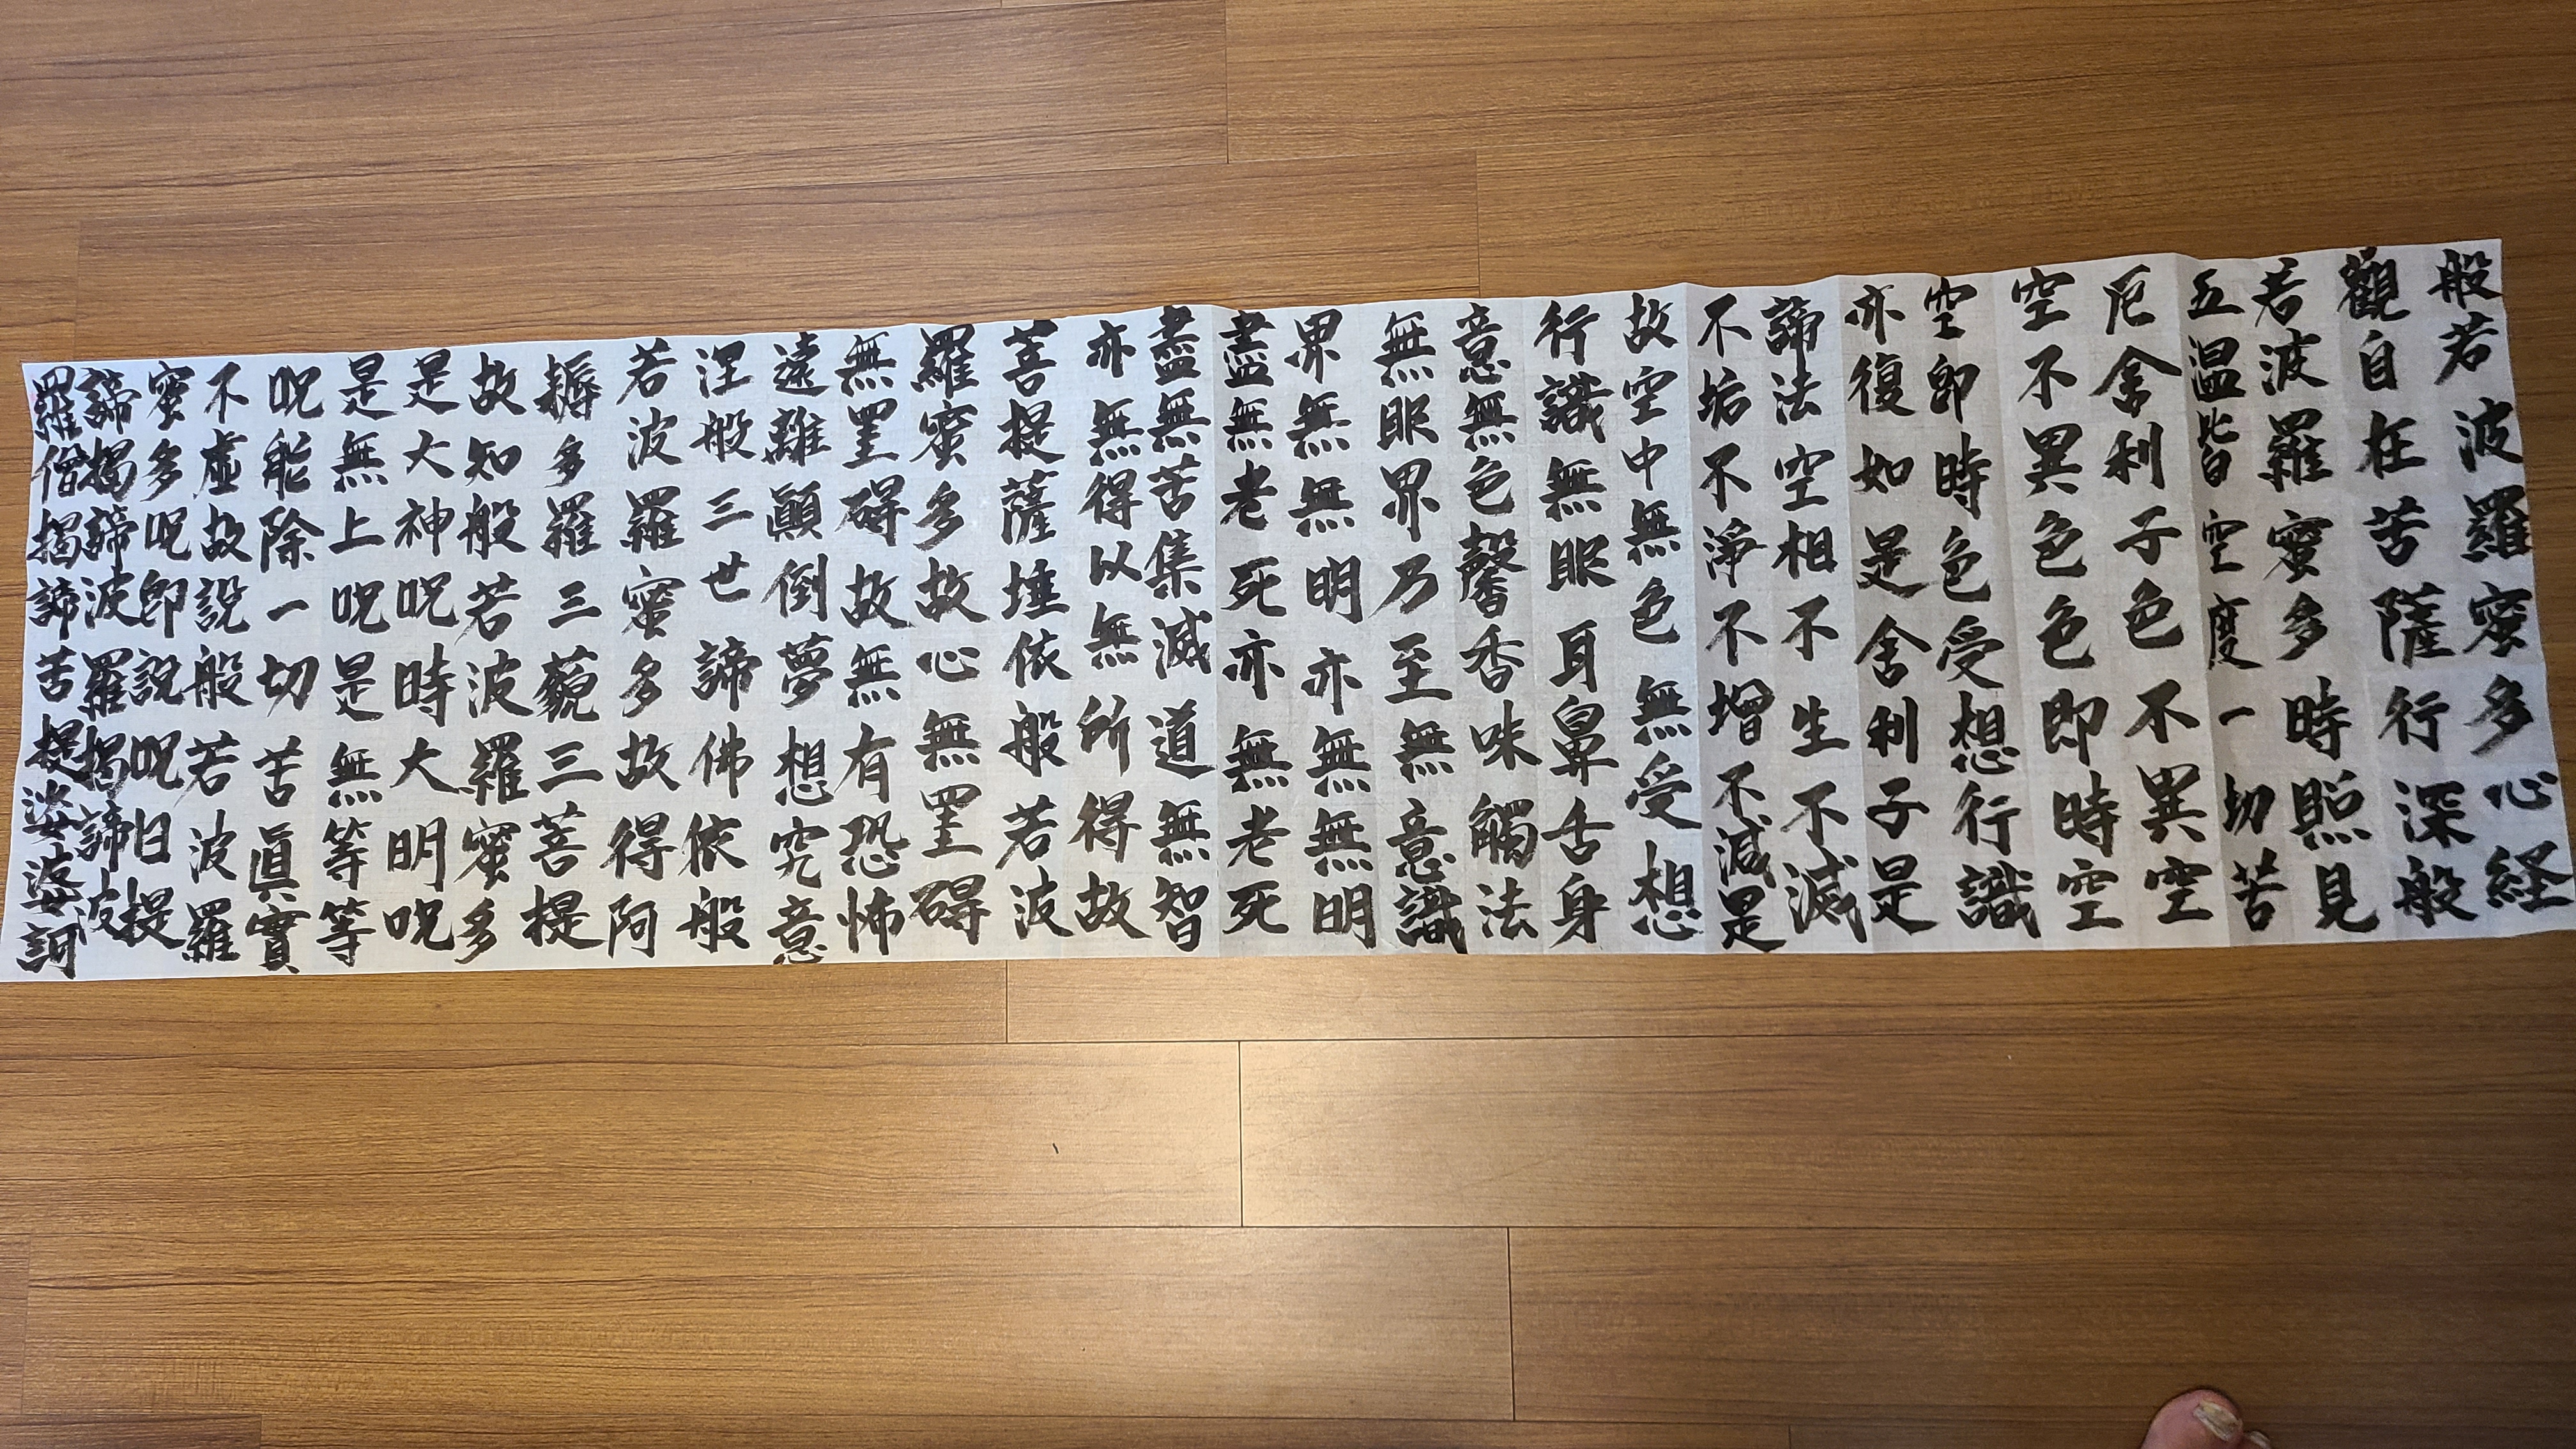 般若波羅蜜多心経
觀自在苦薩行深般
若波羅蜜多時照見
五温皆空度一切苦
厄舍利子色不異空
空不異色色即時空
空即時色受想行識
亦復如是舍利子是
諦法空相不生不滅
不垢不淨不增不減是
故空中無色無受想
行識無眼耳鼻舌身
意無色馨香味觸法
無眼界乃至無意識
界無無明亦無無明
盡無老死亦無老死
盡無苦集滅道無智
亦無得以無所得故
菩提薩埵依般若波
羅蜜多故心無罣碍
無罣碍故無有恐怖
遠離顚倒夢想究意
涅般三世諦佛依般
若波羅蜜多故得阿
耨多羅三藐三菩提
故知般若波羅蜜多
是大神呪時大明呪
是無上呪是無等等
呪能除一切苦眞實
不虛故說般若波羅
蜜多呪即說呪曰提
諦揭諦波羅揭諦波
羅僧揭諦苦提娑婆訶